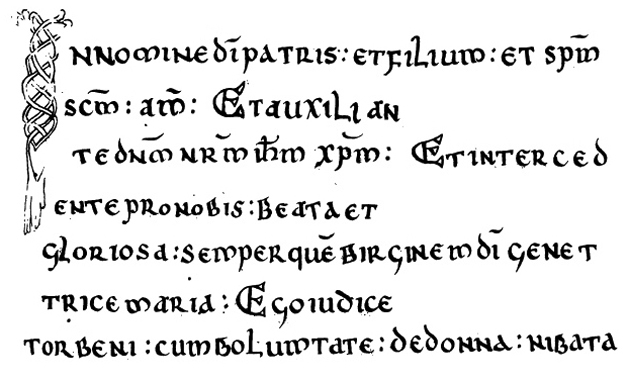 INNOMINEDĪPATRIS: ETFILIUM: ET SPM̄
SCM̄: AM̄: ETAUXILIAN
TEDNM̄ NRM̄ IH̄M XPM̄: ETINTERCED
ENTEPRONOBIS: BEATAET
GLORIOSA: SEMPERQUĒBIRGINEM DĪ GENET
TRICEMARIA: EGOIUDICE
TORBENI: CUMBOLUMTATE: DEDONNA: NIBATA